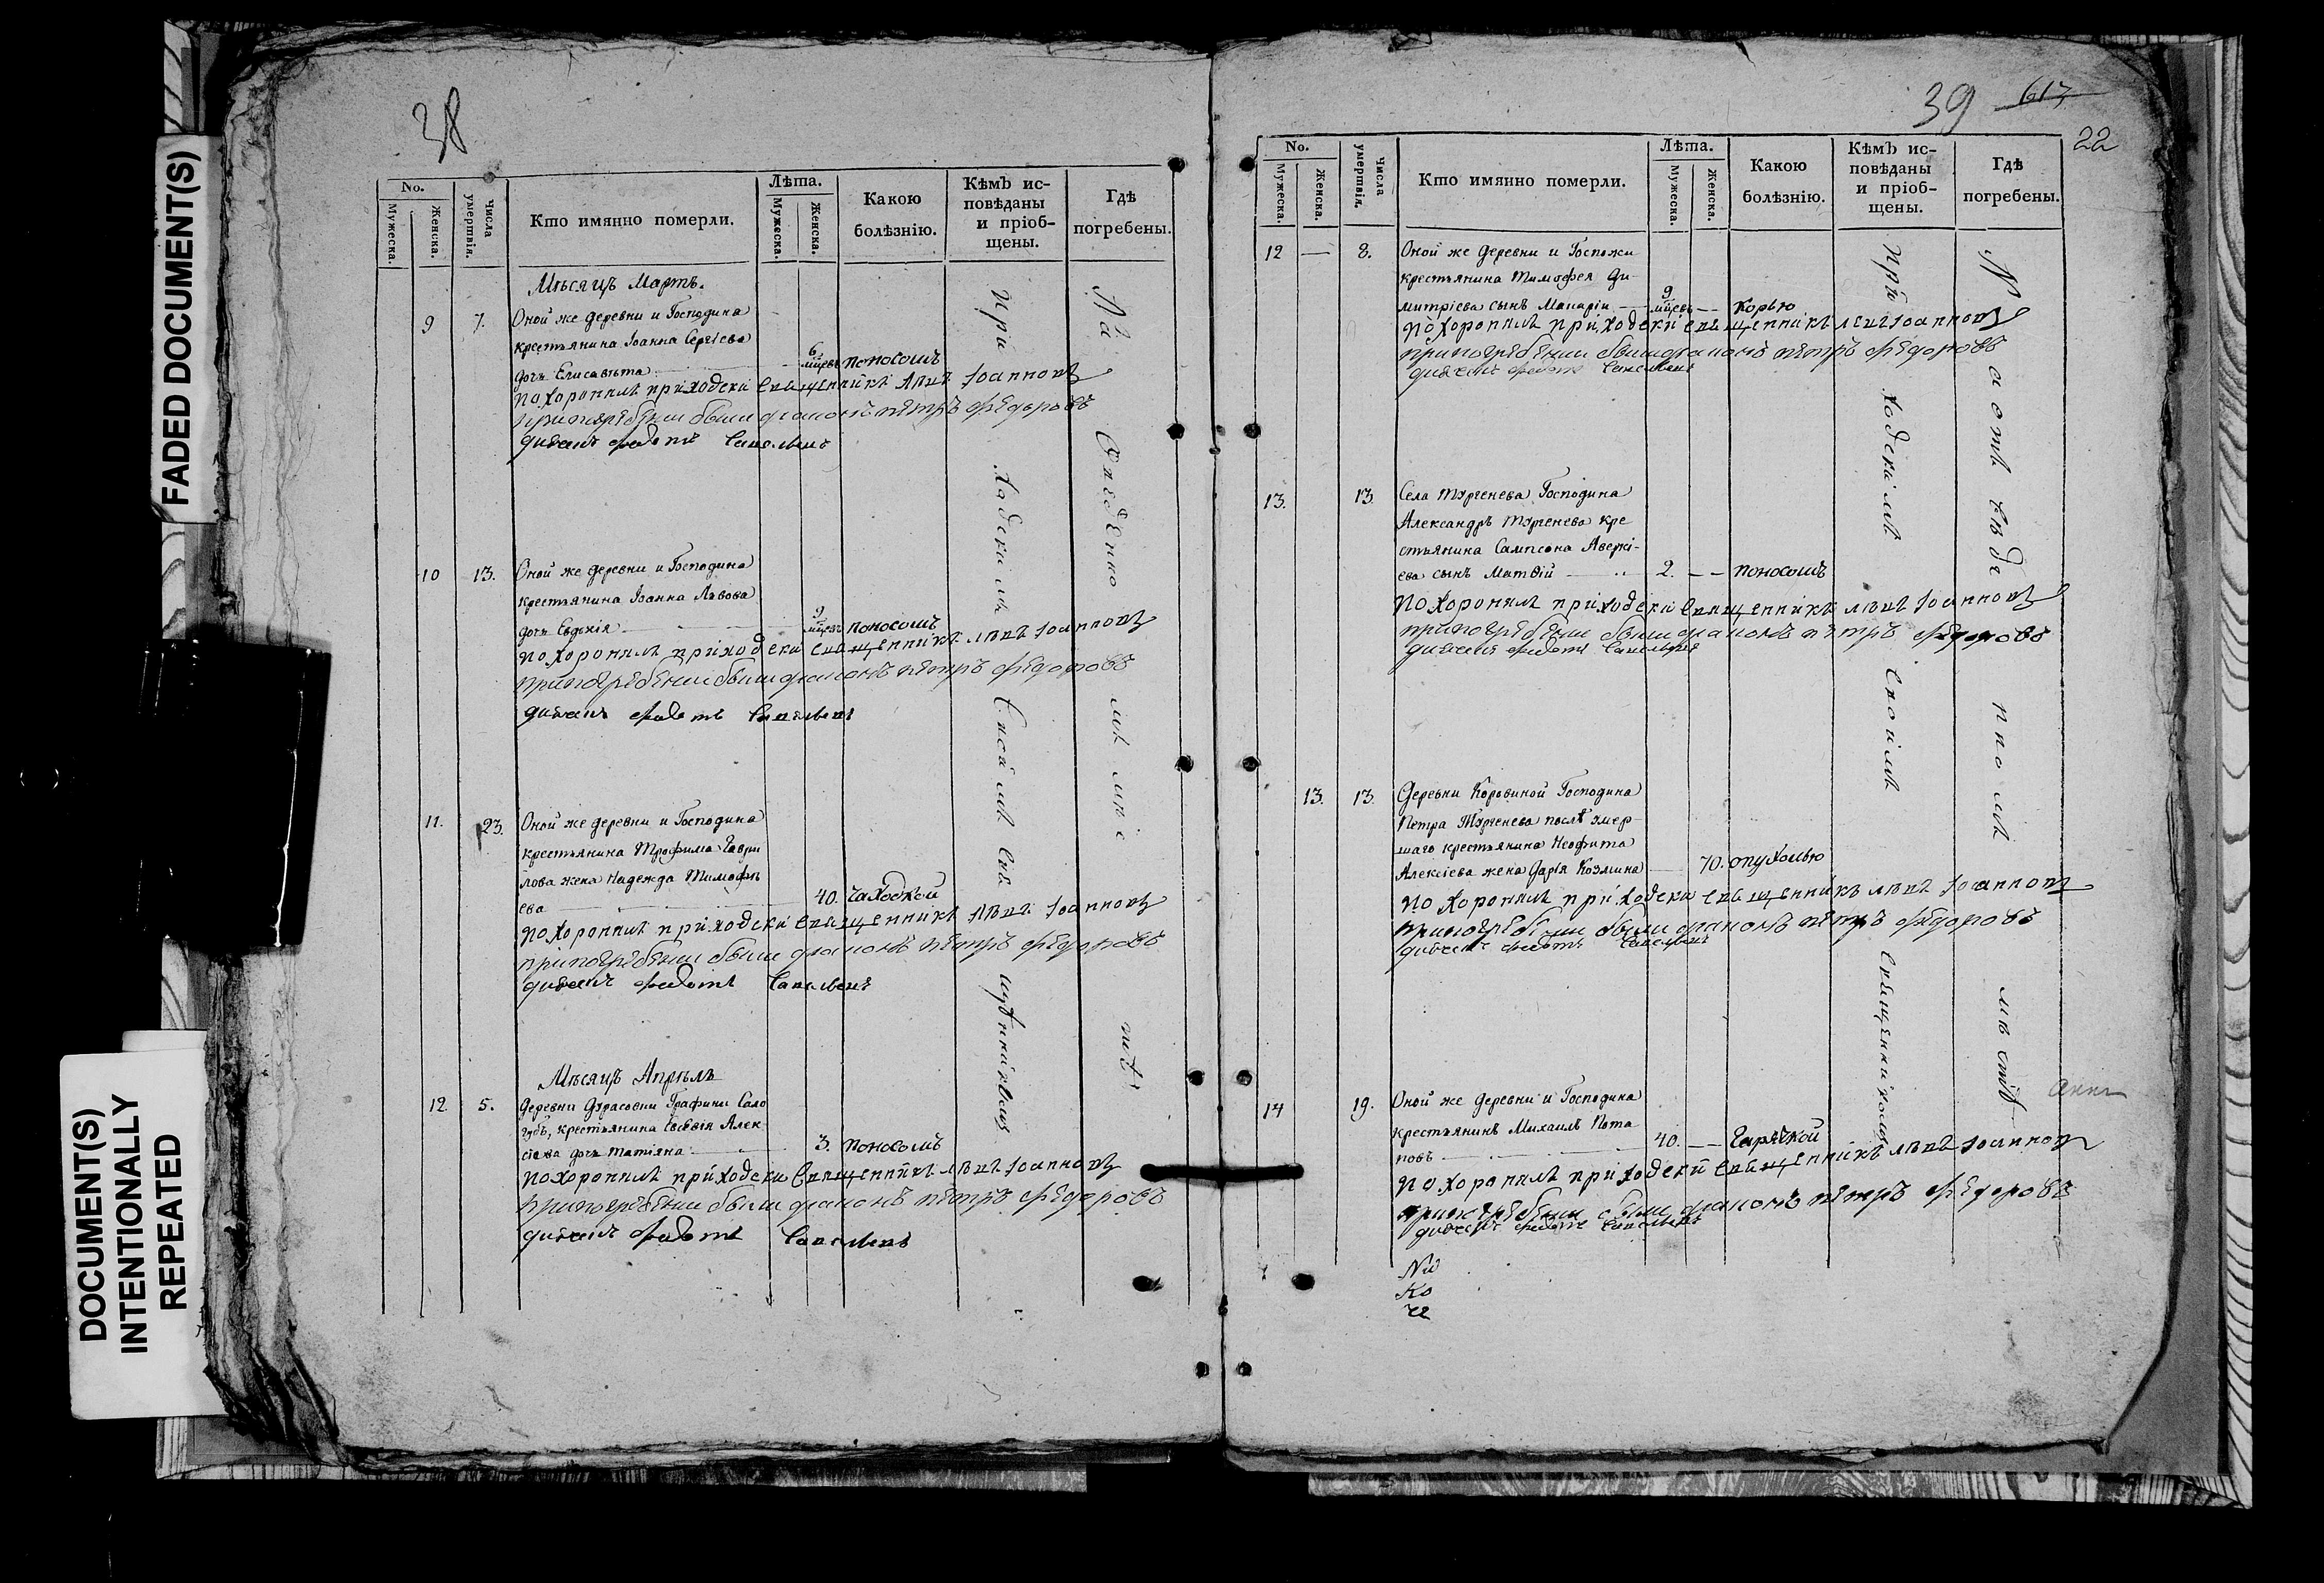 FADED DOCUMENT(S)
DOCUMENT(S)
INTENTIONALLY
REPEATED
38
No.
Мужеска.
Женска.
Числа умертвія.
Кто имянно померли.
Лѣта.
Мужеска.
Женска.
Какою болѣзнію.
Кѣмъ исповѣданы и пріобщены.
Гдѣ погребены.
Мѣсяцъ Мартъ.
9 7. Оной же деревни и Господина
крестьянина Іоанна Сергіева
дочь Елисавета 6 мцевъ поносомъ
похоронилъ приходски священникъ левъ Іоанновъ
при погребении были диаконъ петръ федоровъ
дичекъ федотъ Савельевъ
10 13. Оной же деревни и Господина
крестьянина Іоанна Львова
дочь Евдокія 9 мцевъ поносомъ
похоронилъ приходски священникъ левъ Іоанновъ
при погребении были диаконъ петръ федоровъ
дичекъ федотъ Савельевъ
11. 23. Оной же деревни и Господина
крестьянина Трофима Гаври
лова жена Надежда Тимофѣ
ева 40. чахоткой
похоронилъ приходски священникъ левъ Іоанновъ
при погребении были диаконъ петръ федоровъ
дичекъ федотъ Савельевъ
Мѣсяцъ Апрѣль
12 5. Деревни Дурасовки Графини Сало
губъ, крестьянина Евсевія Алек
сіева дочь Татіяна 3. поносомъ
похоронилъ приходски священникъ левъ Іоанновъ
при погребении были диаконъ петръ федоровъ
дичекъ федотъ Савельевъ
При ходским
На
39
617
22
No.
Мужеска.
Женска.
Числа умертвія.
Кто имянно померли.
Лѣта.
Мужеска.
Женска.
Какою болѣзнію.
Кѣмъ исповѣданы и пріобщены.
Гдѣ погребены.
12 — 8. Оной же деревни и Госпожи
крестьянина Тимофея Ди
митріева сынъ Макарій 9 мцевъ — корью
похоронилъ приходски священникъ левъ Іоанновъ
при погребении были диаконъ петръ федоровъ
дичекъ федотъ Савельевъ
13. 13. Села Тургенева Господина
Александръ Тургенева кре
стьянина Сампсона Аверкі-
ева сынъ Матвій 2. — поносомъ
похоронилъ приходски священникъ левъ Іоанновъ
при погребении были диаконъ петръ федоровъ
дичекъ федотъ Савельевъ
13. 13. Деревни Коровиной Господина
Петра Тургенева послѣ умер-
шаго крестьянина Неофита
Алексіева жена Дарія Козмина 70. опухолью
похоронилъ приходски священникъ левъ Іоанновъ
при погребении были диаконъ петръ федоровъ
дичекъ федотъ Савельевъ
14 19. Оной же деревни и Господина
крестьянинъ Михаилъ Пота
повъ 40. — гарячкой
похоронилъ приходски священникъ левъ Іоанновъ
при погребении были диаконъ петръ федоровъ
дичекъ федотъ Савельевъ
При ходскимъ своимъ священникомъ
На отведенномъ местѣ